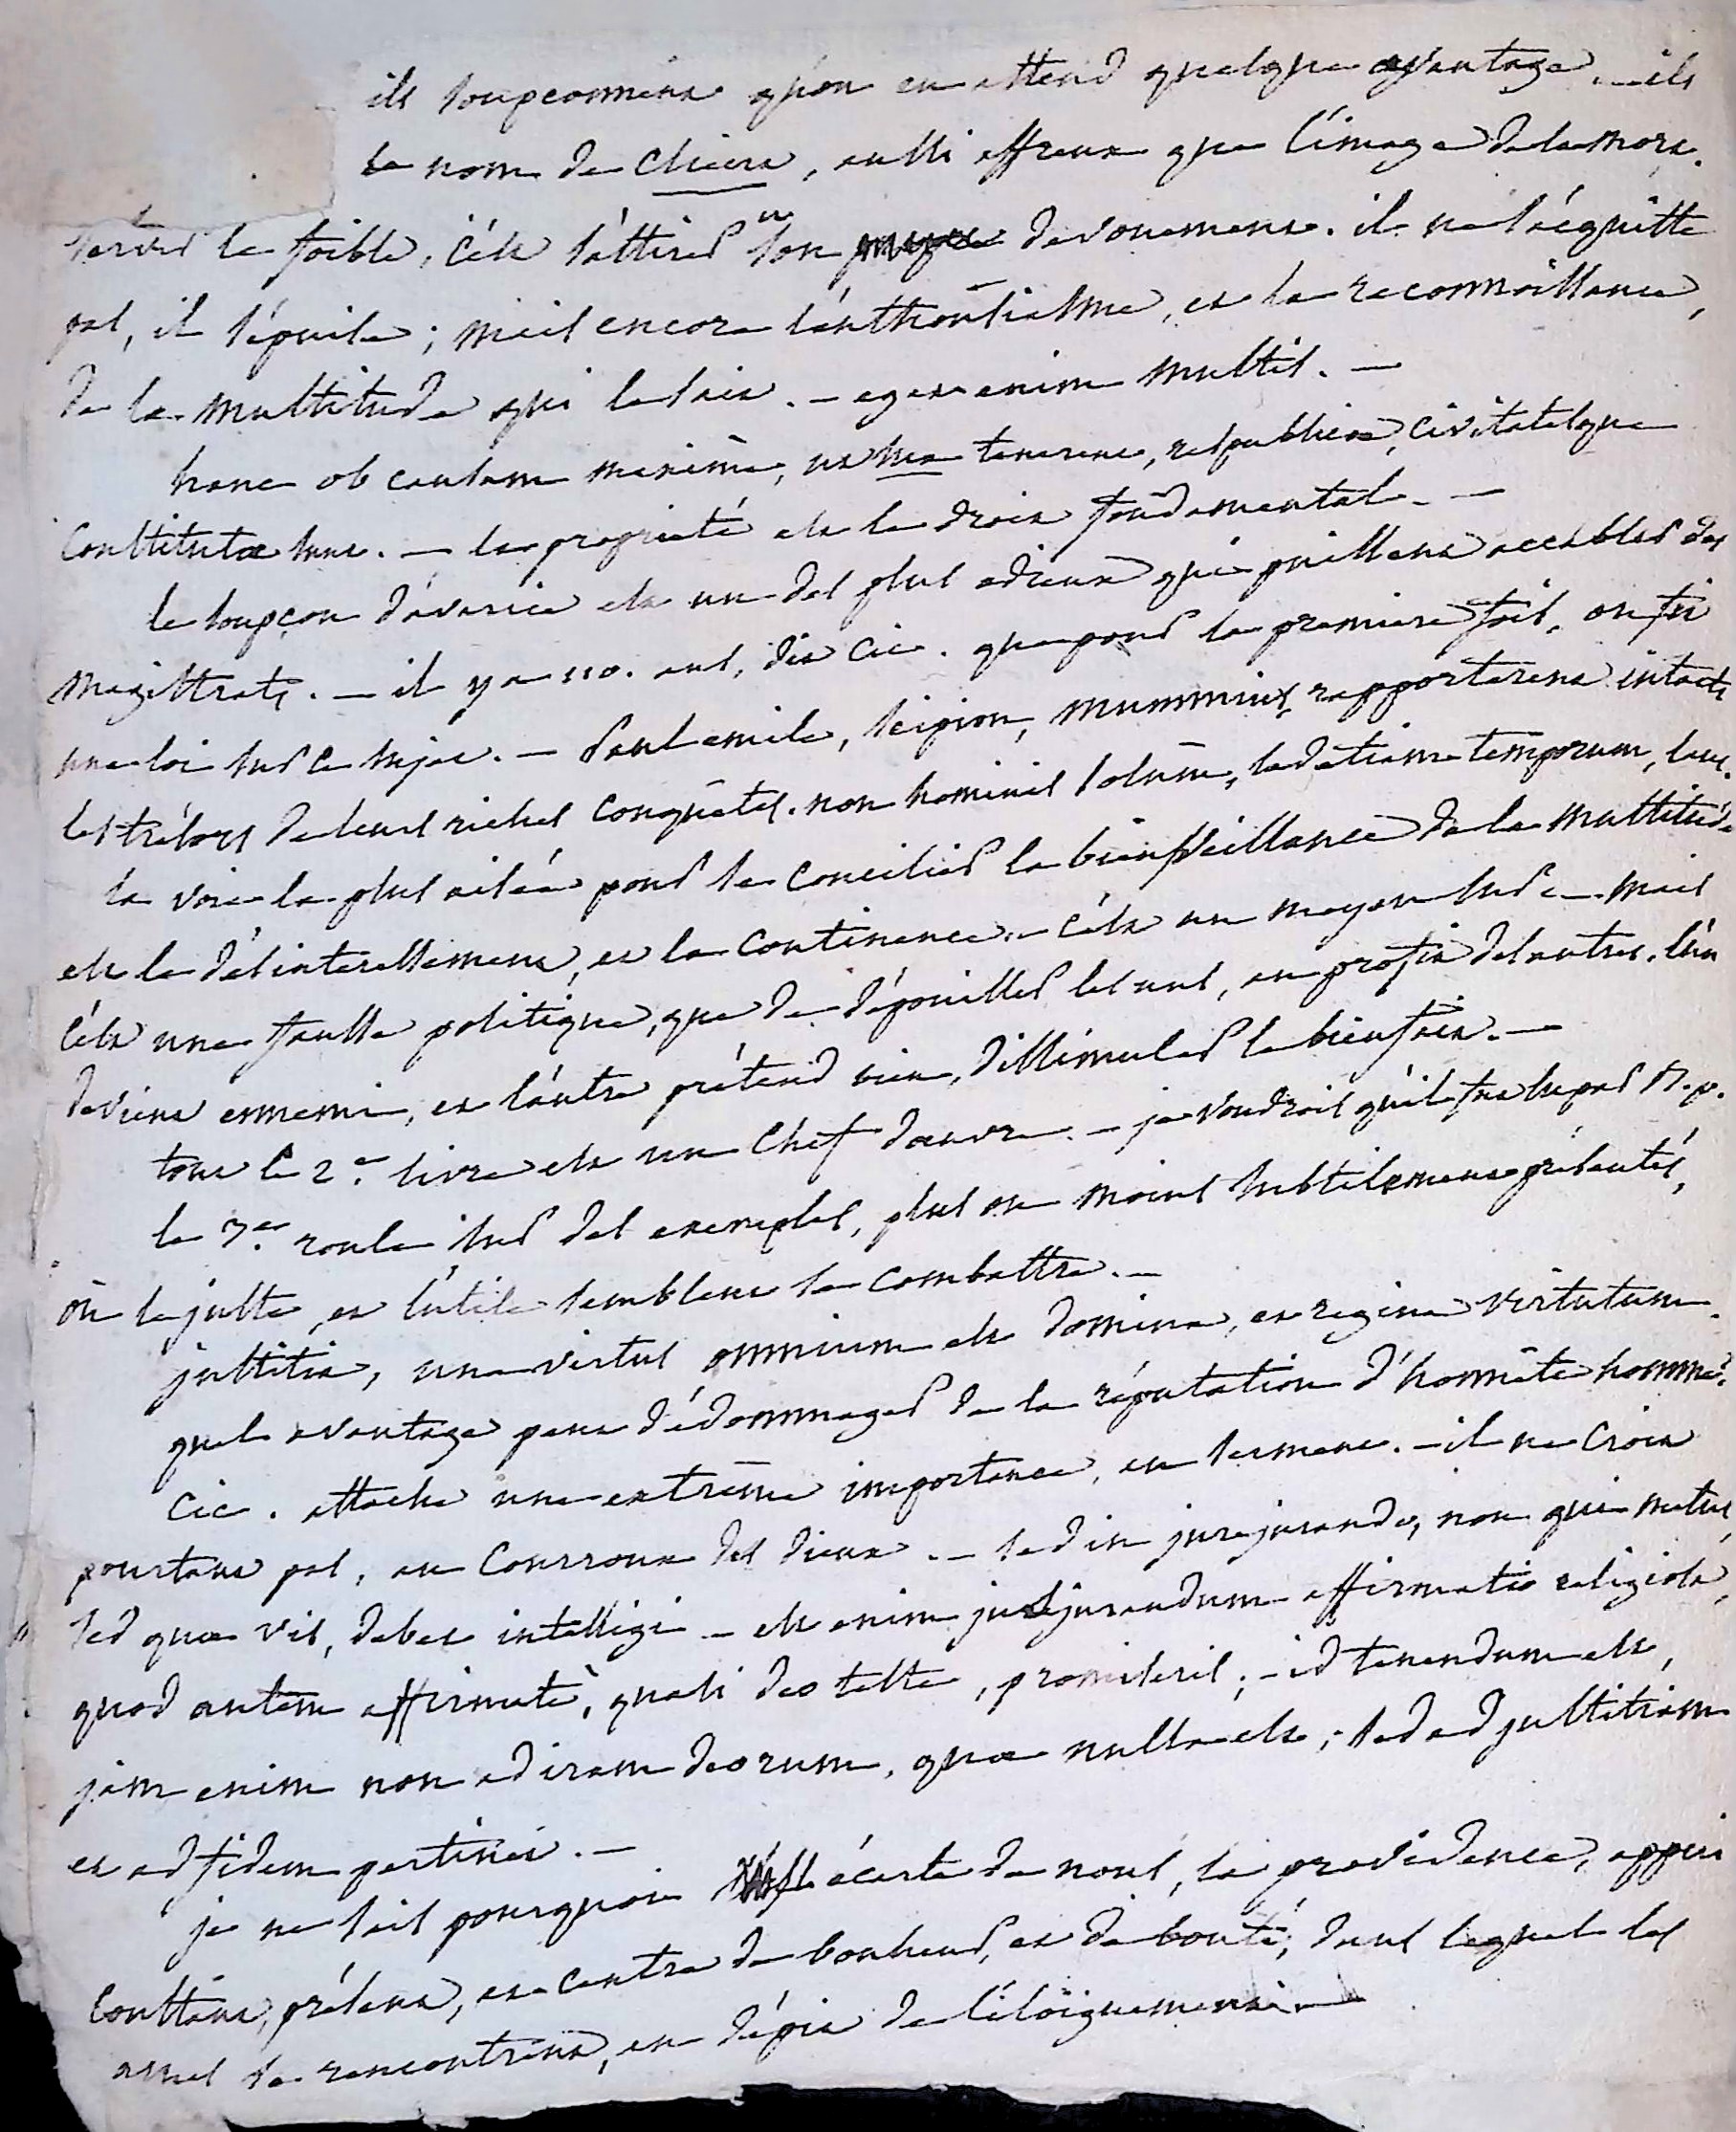 ils soupçonnent qu'on en attend quelque avantage. — ils
le nom de client, aussi affreux que l'image de la mort.
servir le foible, c'est s'attirer son devouement. il ne s'acquitte
pas, il s'épuise ; mais encore l'enthousiasme, et la reconnoissance,
de la multitude qui le sait. — eget enim multis. —
hanc ob causam maximè, ut sua tenerent, respublicae, civitatesque
constitutæ sunt. — la proprieté est le droit fondamental. —
le soupçon d'avarice est un des plus odieux qui puissent accabler des
magistrats. — il y a 110. ans, dit Cic. que pour la premiere fois, on fit
une loi sur ce sujet. — Paul emile, scipion, mummius, rapporterent intacts
les trésors de leurs riches conquêtes. non hominis solùm, sed etiam temporum, laus.
la voie la plus aisée pour se concilier la bienveillance de la multitude
est le désinteressement, et la continence. — c'est un moyen sur — mais
c'est une fausse politique, que de dépouiller les uns, au profit des autres. l'un
devient ennemi, et l'autre prétend bien, dissimuler le bienfait. —
tout le 2.e livre est un chef d'œuvre. — je voudrois qu'il fut lu par
le 3.e roule sur des exemples, plus ou moins subtilement présentés,
où le juste, et l'utile semblent se combattre. —
justitia, una virtus omnium est domina, et regina virtutum.
quel avantage peut dédommager de la réputation d'honnête homme.
Cic. attache une extrême importance, au serment. — il ne croit
pourtant pas, au courroux des dieux. — sed in jurejurando, non qui metus,
sed quæ vis, debet intelligi — est enim jusjurandum affirmatio religiosa,
quod autem affirmatè, quasi deo teste, promiseris ; — id tenendum est,
jam enim non ad iram deorum, quæ nulla est ; sed ad justitiam
et ad fidem pertinet. —
je ne sais pourquoi écarte de nous, la providence, appui
constant, présent, et centre de bonheur, et de bonté, dans lequel les
ames se rencontrent, en dépit de l'éloignement. —